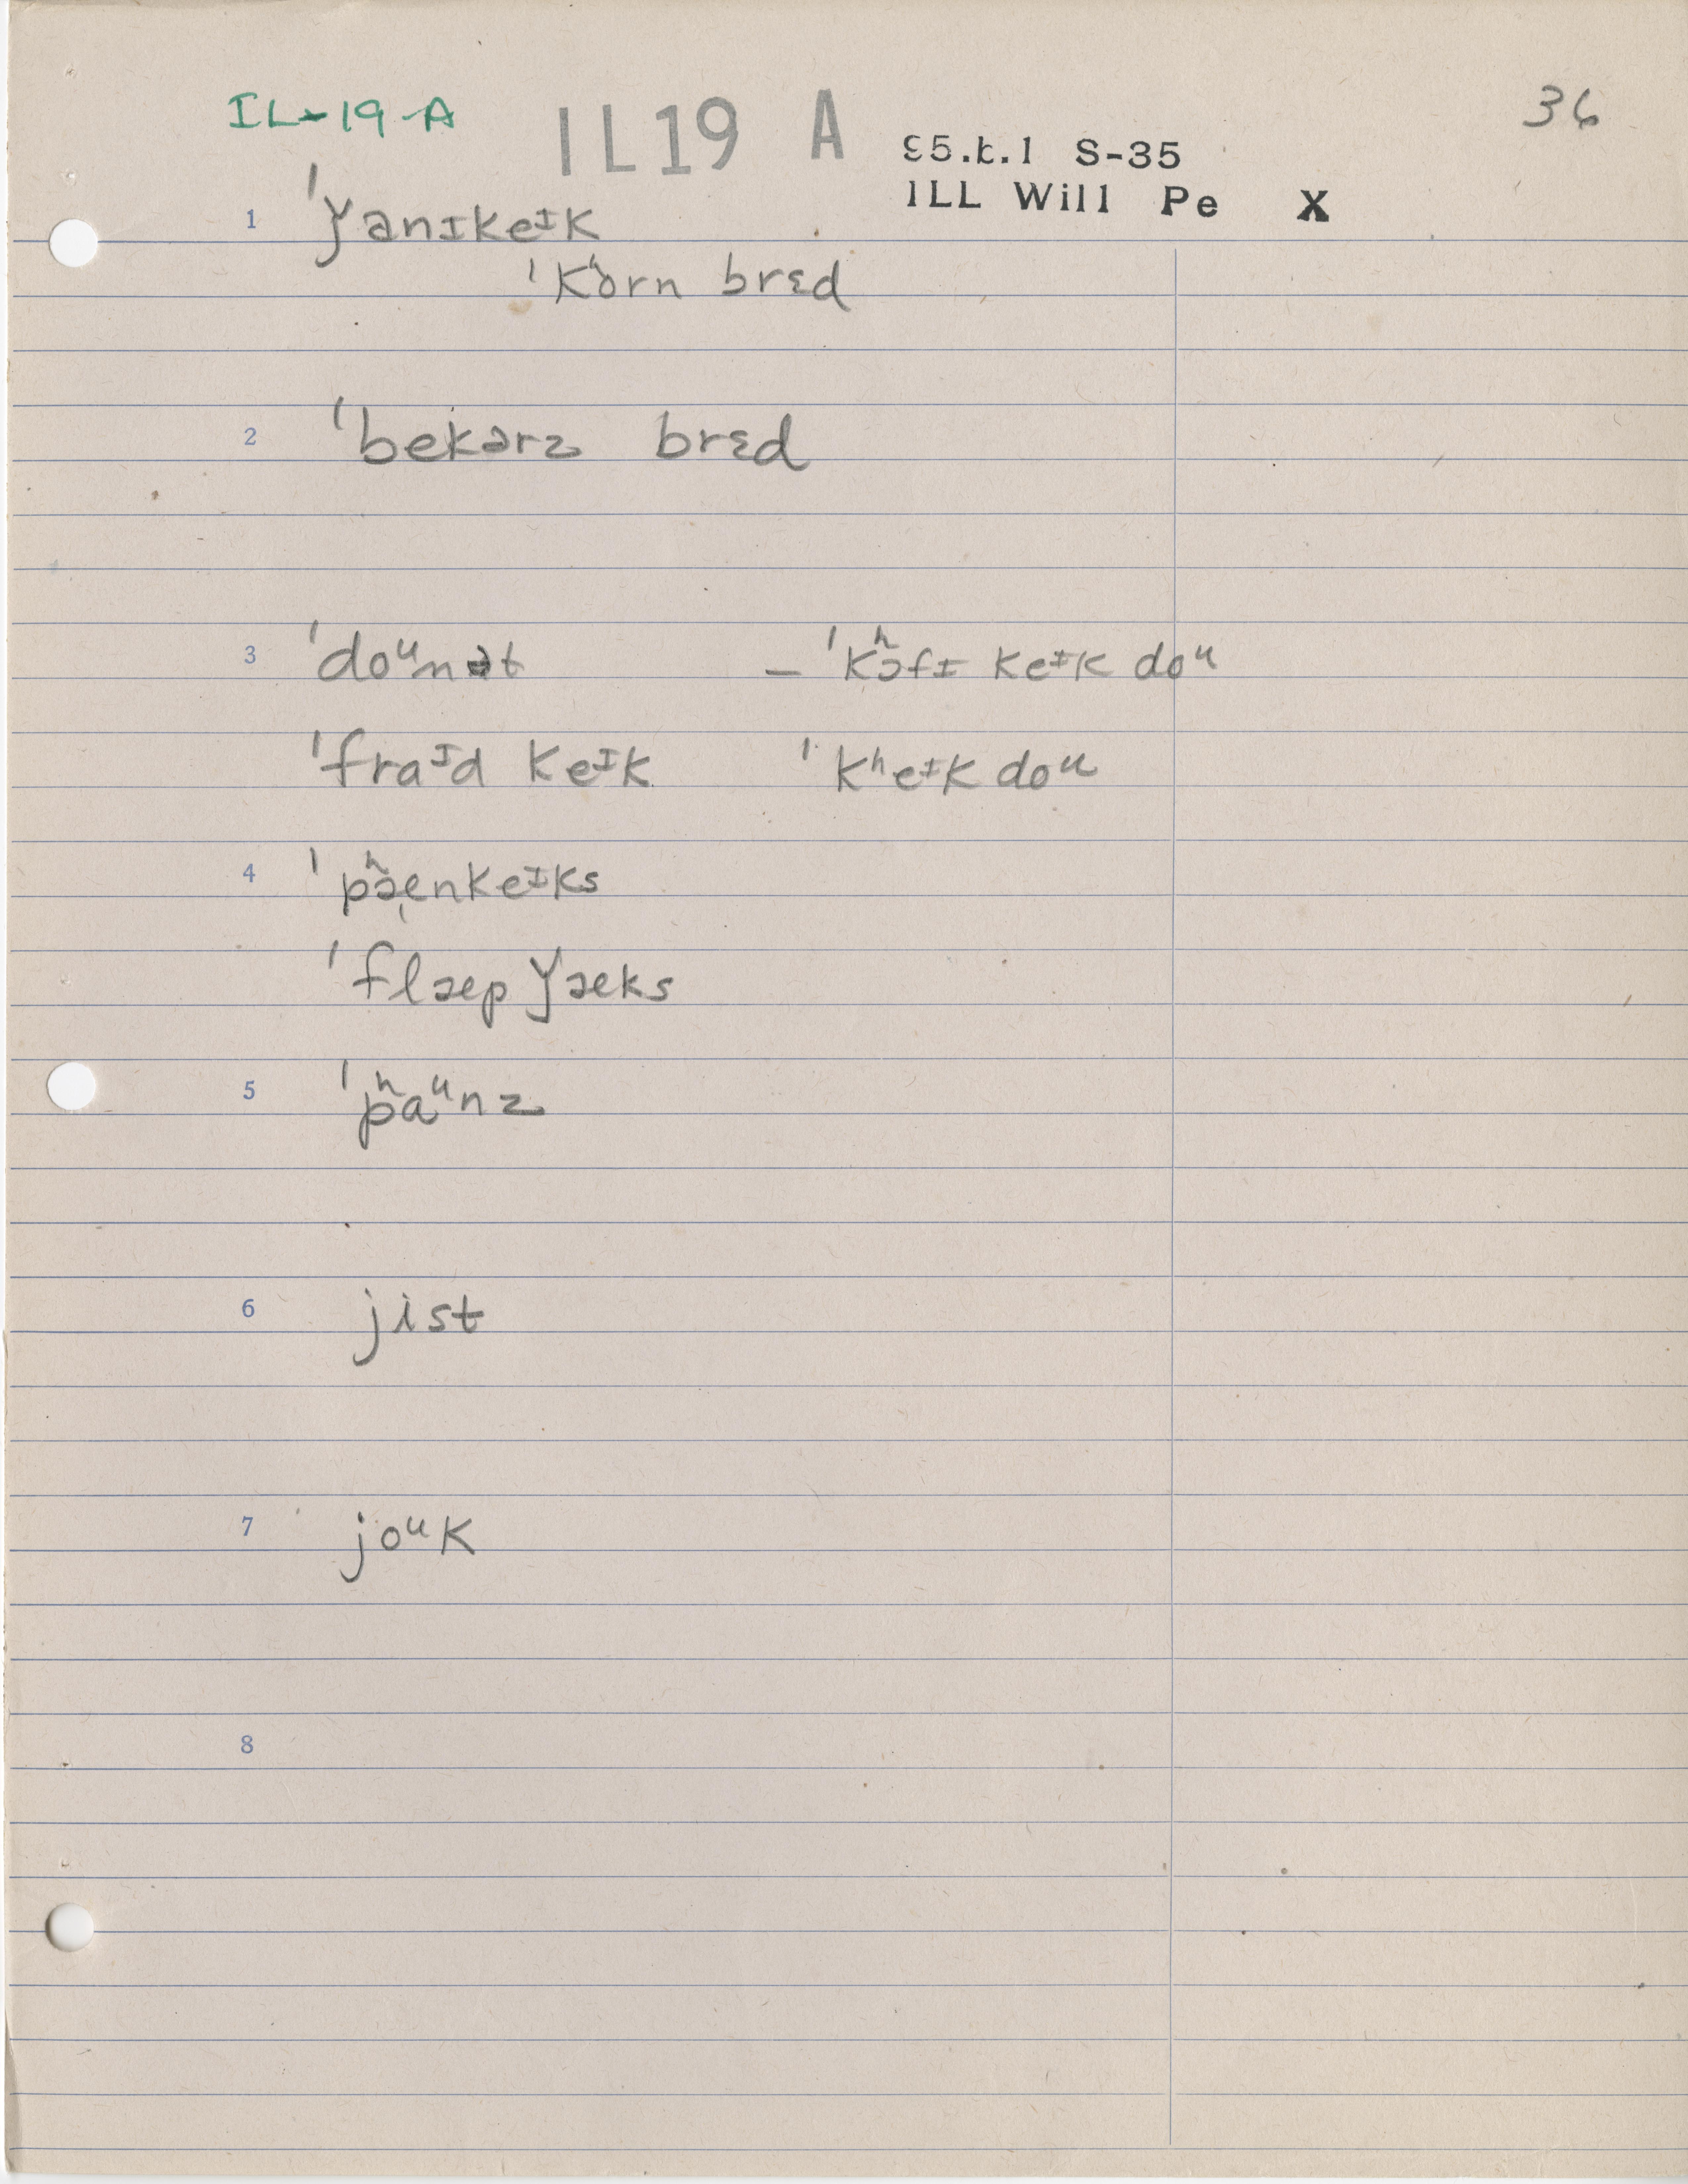 IL-19-A IL19 A 36
ε5.t.1 S-35
ILL Will Pe X
1 ˈǰanɪkeᶦk
ˈkʰorn brɛd
2 ˈbekərz brɛd
3 ˈdoᵘnət – ˈkʰɔfɪ keᶦk doᵘ
ˈfraᶦd keᶦk ˈkʰeᶦk doᵘ
4 ˈpʰæ̩nkeᶦks
ˈflæp ǰæks
5 ˈpʰaᵘnz
6 jist
7 joᵘk
8